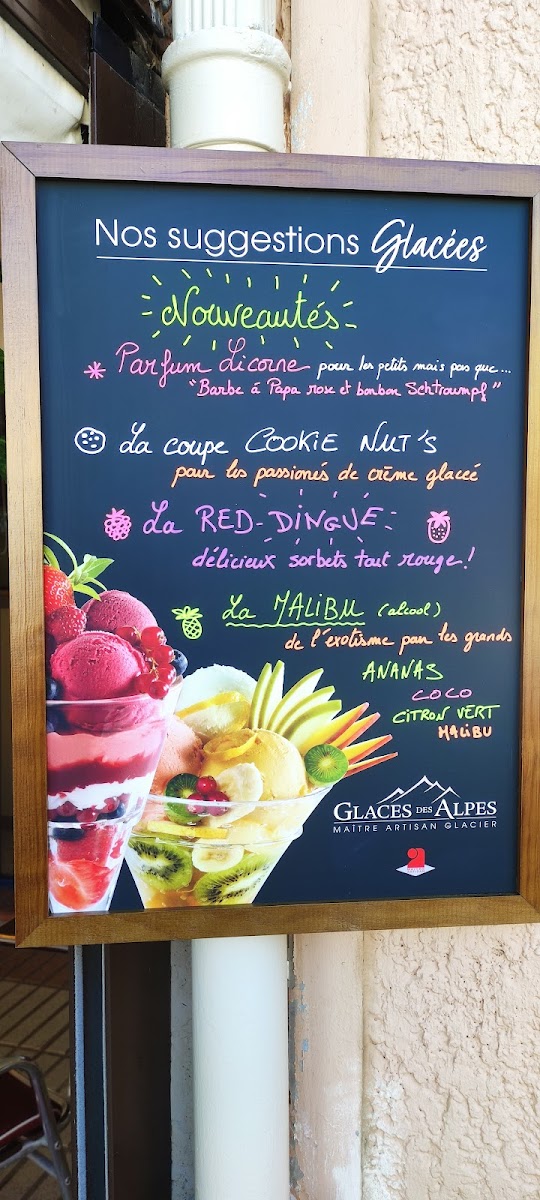 Nos suggestions Glacées
Nouveautés
Parfum Licorne pour les petits mais pas que...
"Barbe à Papa rose et bonbon Schtroumpf"
La coupe COOKIE NUT'S
pour les passionés de crème glacéé
La RED-DINGUE
délicieux sorbets tout rouge!
La MALiBU (alcool)
de l'exotisme pour les grands
ANANAS
COCO
CiTRON VERT
MALiBU
GLACES DES ALPES
MAÎTRE ARTISAN GLACIER